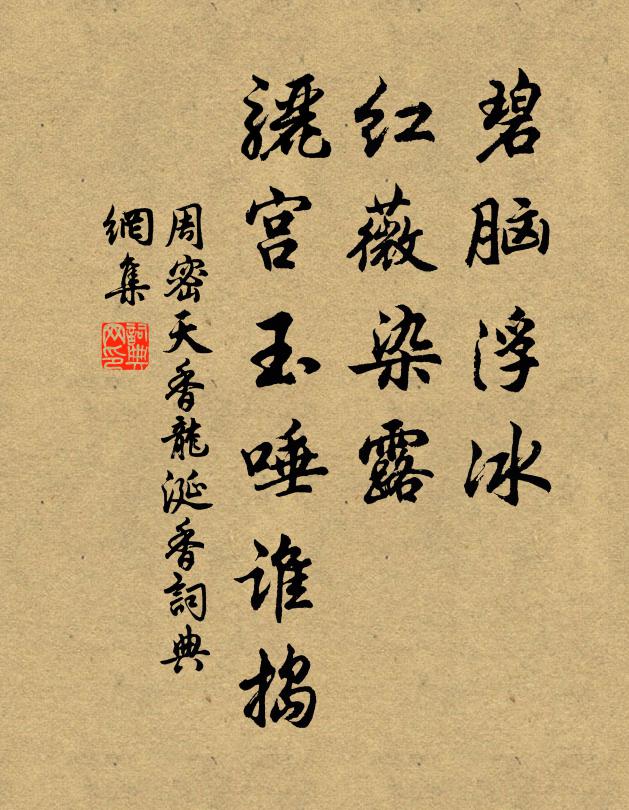 碧脑浮冰
红薇染露
骊宫玉唾谁捣
周密天香龍涎香詞典
網集
詞典
网印